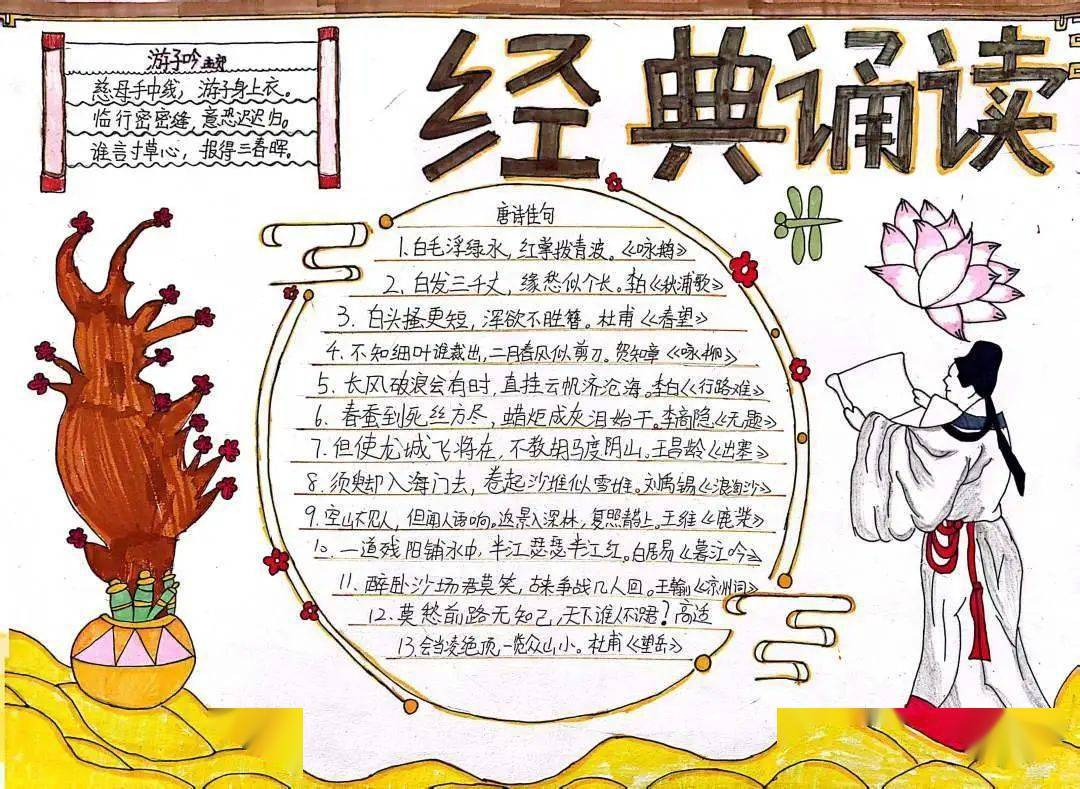 经典诵读
游子吟 孟郊
慈母手中线，游子身上衣。
临行密密缝，意恐迟迟归。
谁言寸草心，报得三春晖。
唐诗佳句
1.白毛浮绿水，红掌拨青波。《咏鹅》
2.白发三千丈，缘愁似个长。李白《秋浦歌》
3.白头搔更短，浑欲不胜簪。杜甫《春望》
4.不知细叶谁裁出，二月春风似剪刀。贺知章《咏柳》
5.长风破浪会有时，直挂云帆济沧海。李白《行路难》
6.春蚕到死丝方尽，蜡炬成灰泪始干。李商隐《无题》
7.但使龙城飞将在，不教胡马度阴山。王昌龄《出塞》
8.须臾却入海门去，卷起沙堆似雪堆。刘禹锡《浪淘沙》
9.空山不见人，但闻人语响。返景入深林，复照青苔上。王维《鹿柴》
10.一道残阳铺水中，半江瑟瑟半江红。白居易《暮江吟》
11.醉卧沙场君莫笑，古来争战几人回。王翰《凉州词》
12.莫愁前路无知己，天下谁人不识君？高适
13.会当凌绝顶，一览众山小。杜甫《望岳》